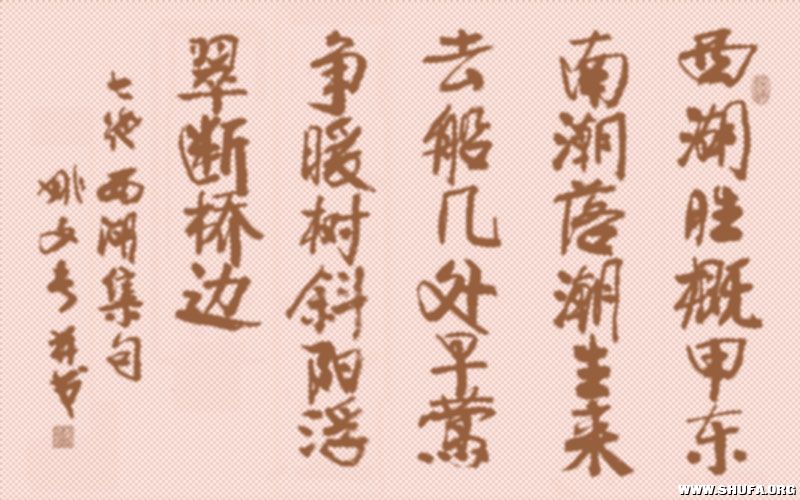 西湖胜概甲东
南潮落潮生来
去船几处早莺
争暖树斜阳浮
翠断桥边
七绝西湖集句
并书
WWW.SHUFA.ORG